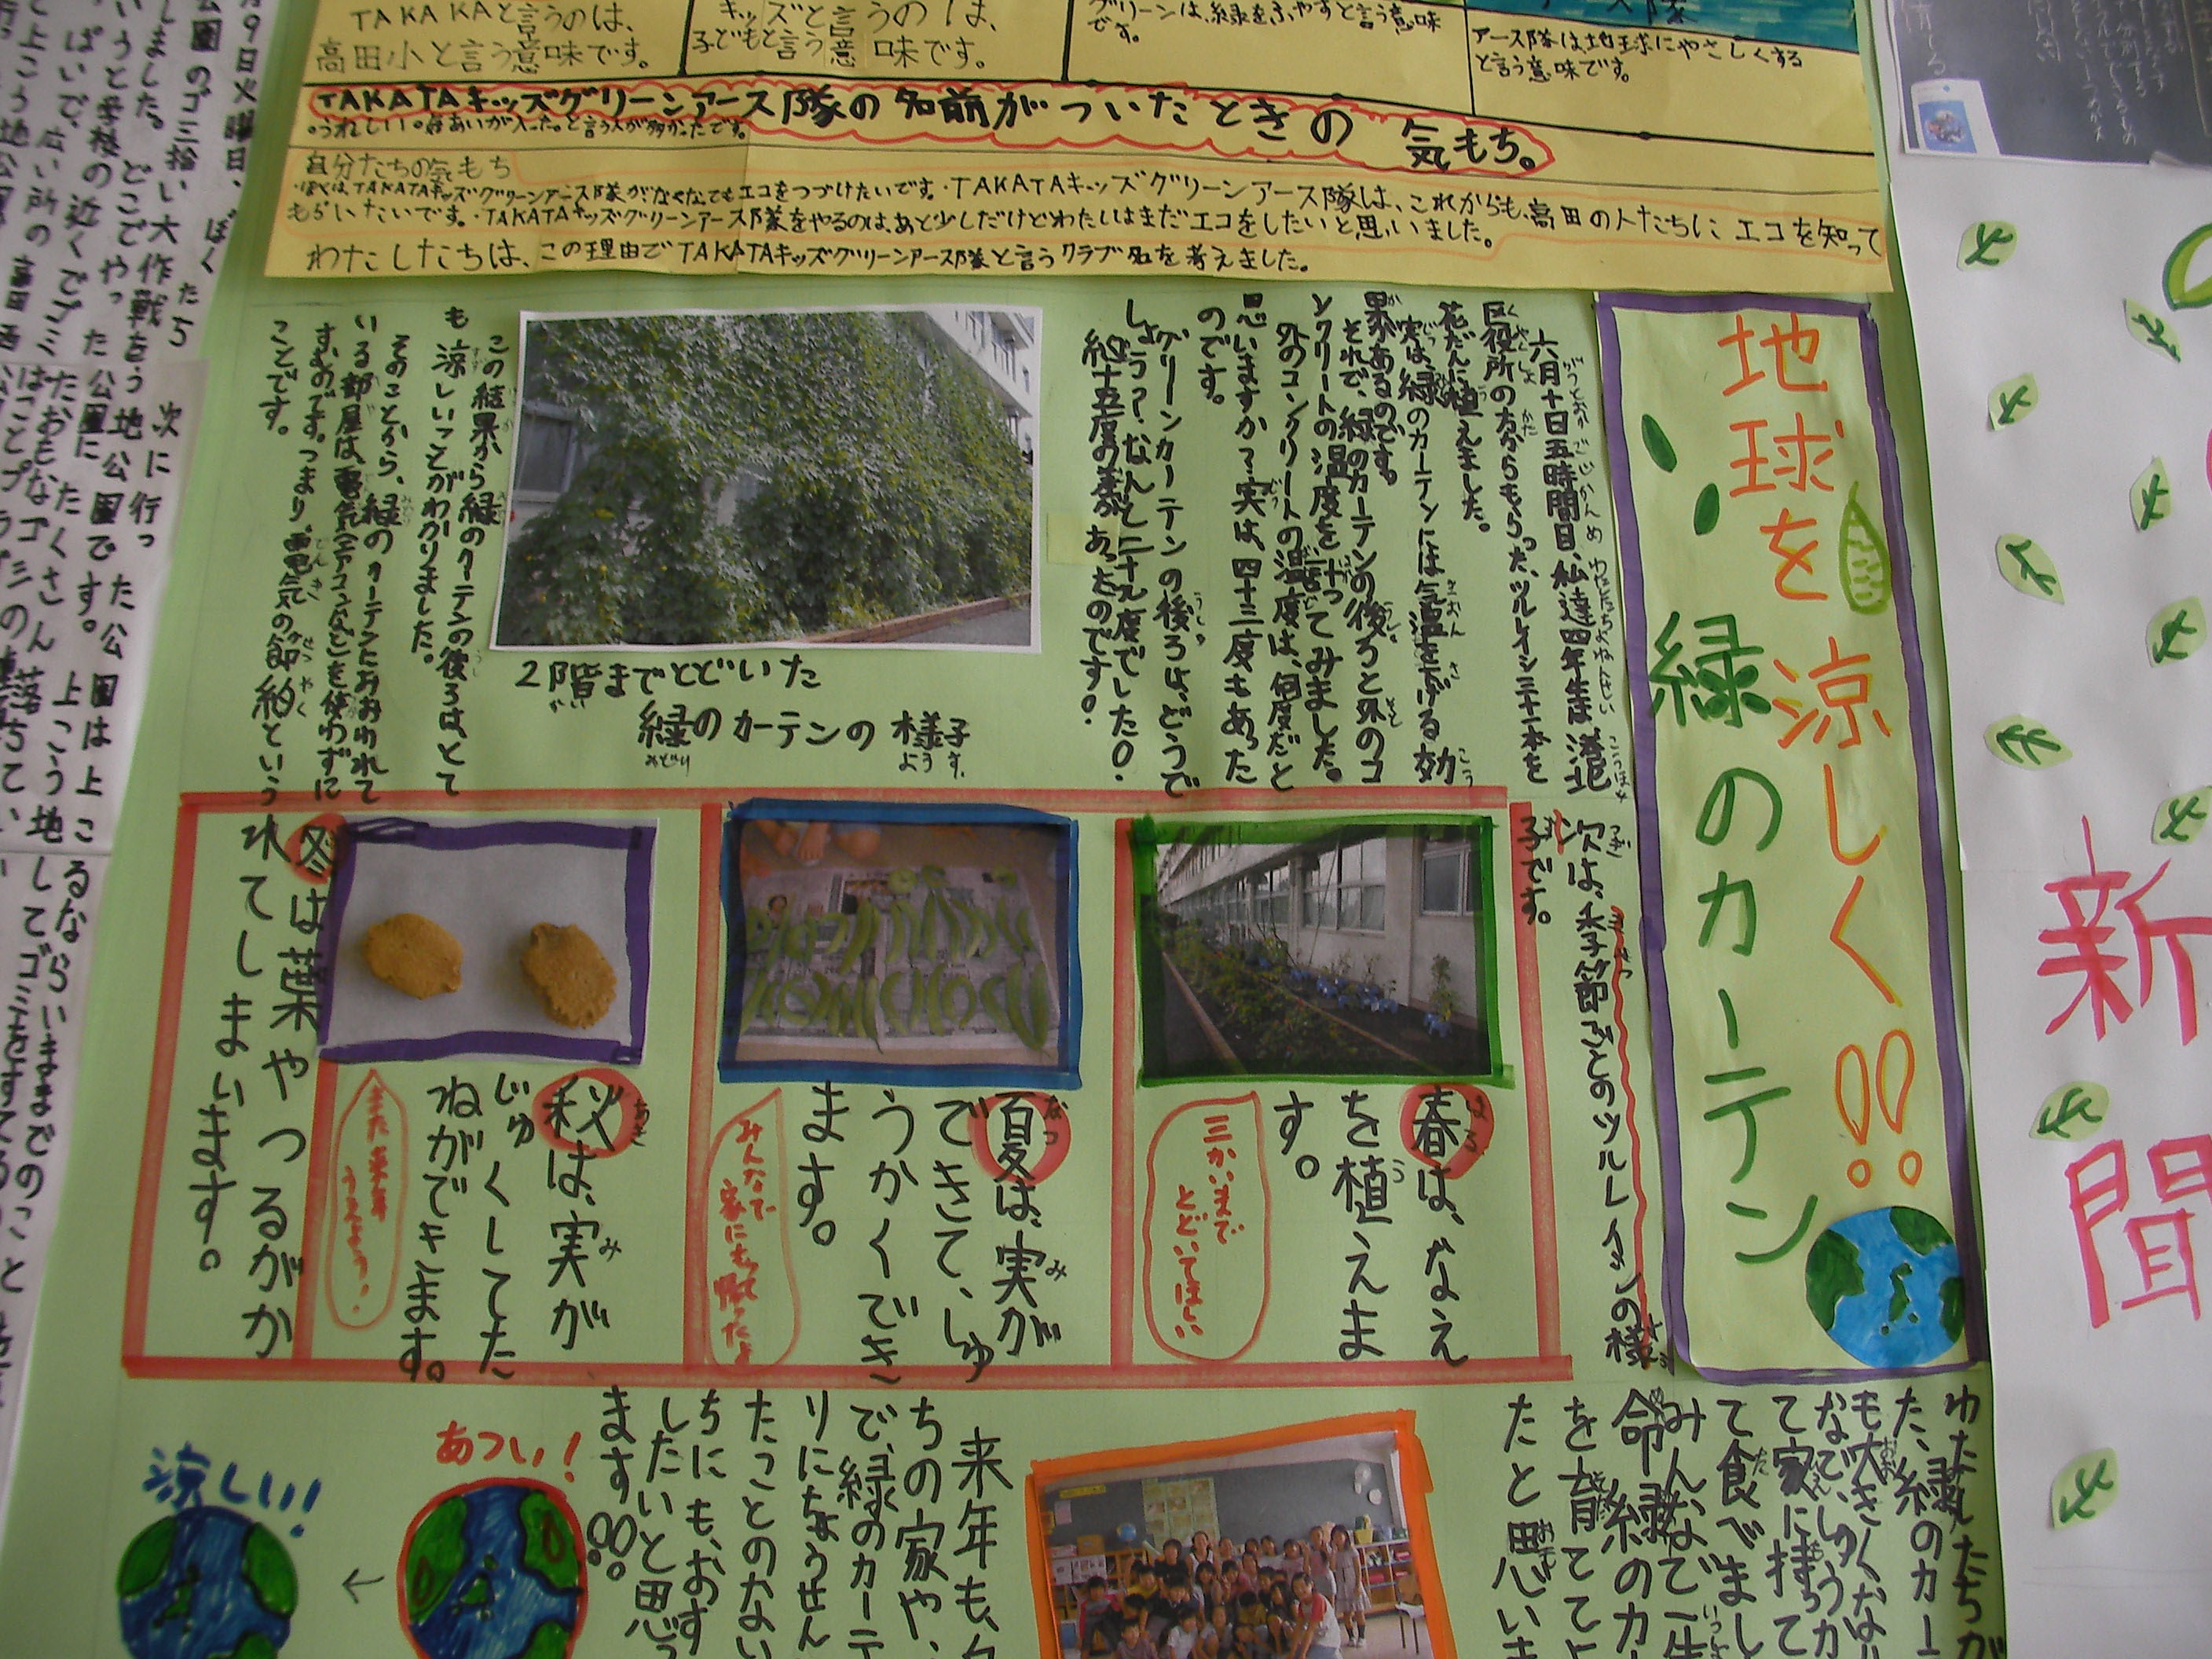 TAKAKAと言うのは、
高田小と言う意味です。
キッズと言うのは、
子どもと言う意味です。
グリーンは、緑をふやすと言う意味
です。
アース隊は地球にやさしくする
と言う意味です。
TAKATAキッズグリーンアース隊の名前がついたときの気もち。
自分たちの気もち
・ぼくはTAKATAキッズグリーンアース隊がなくなってもエコをつづけたいです。・TAKATAキッズグリーンアース隊は、これからも、高田の人たちにエコを知って
もらいたいです。・TAKATAキッズグリーンアース隊をやるのは、あと少しだけどわたしはまだエコをしたいと思いました。
わたしたちは、この理由でTAKATAキッズグリーンアース隊と言うクラブ名を考えました。
新聞
地球を涼しく!!
緑のカーテン
六月十日五時間目、私達四年生は港北
区役所の方からもらった、ツルレイシ三十本を
花だんに植えました。
実は、緑のカーテンには気温を下げる効
果があるのです。
それで、緑のカーテンの後ろと外のコ
ンクリートの温度を計ってみました。
外のコンクリートの温度は、何度だと
思いますか?実は、四十三度もあった
のです。
グリーンカーテンの後ろは、どうで
しょう?なんと二十九度でした。
約十五度の差があったのです。
2階までとどいた
緑のカーテンの様子
この結果から緑のカーテンの後ろは、とて
も涼しいことがわかりました。
そのことから、緑のカーテンにおおわれて
いる部屋は、電気(エアコンなど)を使わずに
すむのです。つまり、電気の節約という
ことです。
次は、季節ごとのツルレイシの様
子です。
春は、なえ
を植えま
す。
三かいまで
とどいてほしい
夏は、実が
できて、しゅ
うかくでき
ます。
みんなで
家にもって
帰ったよ
秋は、実が
じゅくしてた
ねができます。
また来年
うえよう!
冬は葉やつるがか
れてしまいます。
わたしたちが
た、緑のカー
も大きくなり
なで、しゅうか
て家に持って
て食べまし
みんなで一生
命緑のカ
を育ててよ
たと思いま
来年も、
ちの家や、
で、緑のカーテ
りにちょうせん
たことのない
ちにも、おす
したいと思
ます!!
あつい!
涼しい!
←
月9日火曜日、ぼくたち
公園のゴミ拾い大作戦を
しました。どこでやった
いうと学校の近くでゴミ
っぱいで、広い所の高田西
次に行った公園は上こ
う地公園です。上こう地
公園にたくさん落ちてい
たおもなゴミの
るならいままでのこと
してゴミをすてる